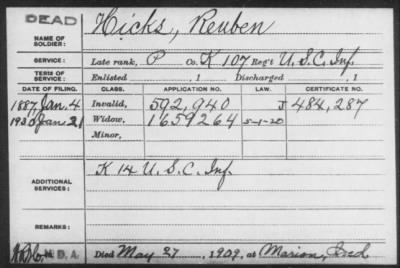 DEAD
NAME OF SOLDIER: Hicks, Reuben
SERVICE: Late rank, P Co. K 107 Reg't U. S. C. Inf.
TERM OF SERVICE: Enlisted , 1 Discharged , 1
DATE OF FILING. CLASS. APPLICATION NO. LAW. CERTIFICATE NO.
1887 Jan. 4 Invalid, 592,940 J 484,287
1920 Jan. 21 Widow, 1659264 5-1-20
Minor,
ADDITIONAL SERVICES: K 14 U. S. C. Inf.
REMARKS:
Died May 27, 1909, at Marion, Ind